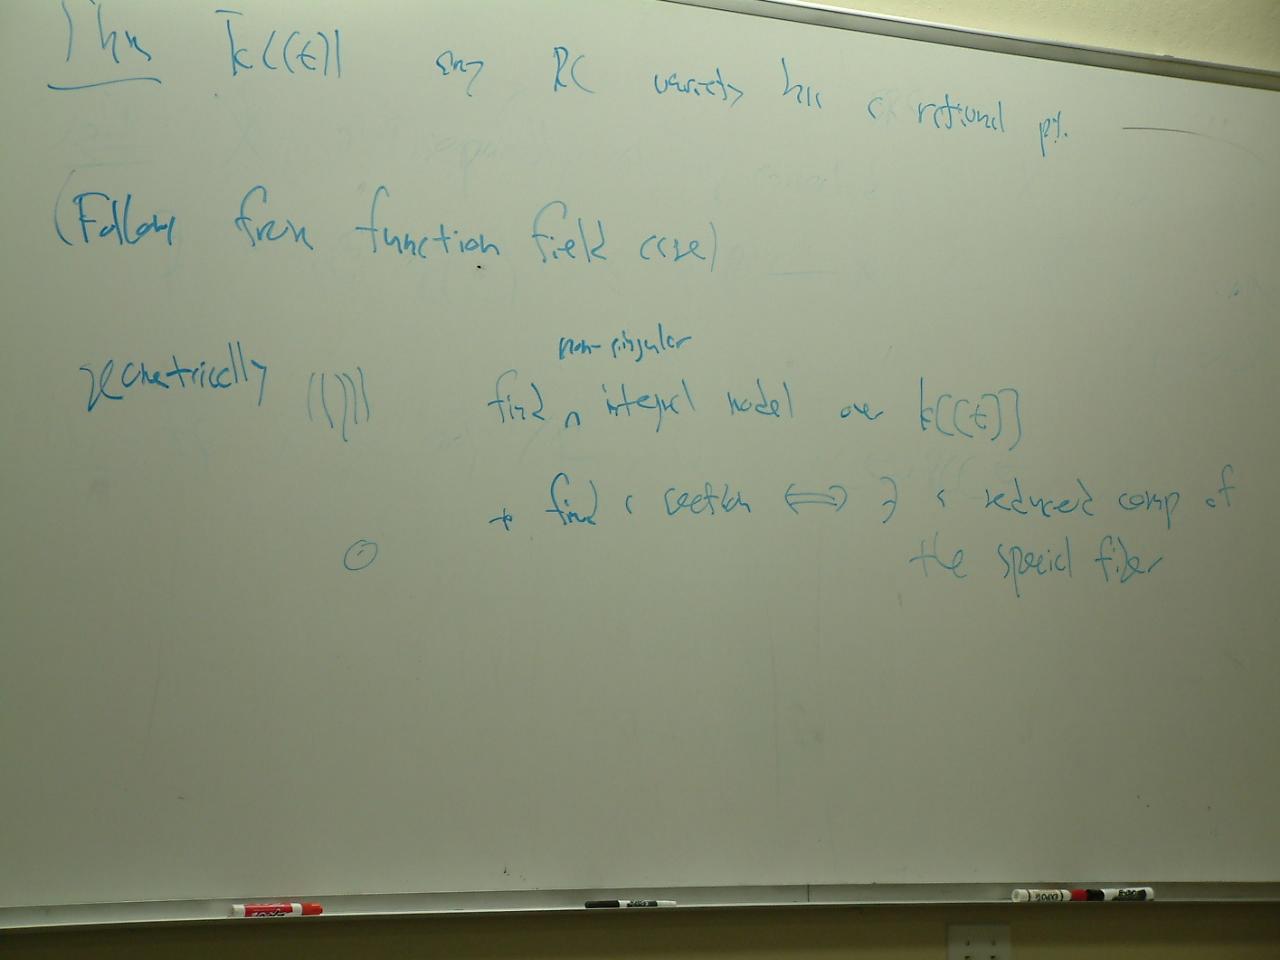 Thm k̄((t)) any RC variety has a rational pt.
(Follows from function field case)
geometrically
non-singular
find ∧ integral model over k[[t]]
+ find a section ⟺ ∃ a reduced comp of
the special fiber